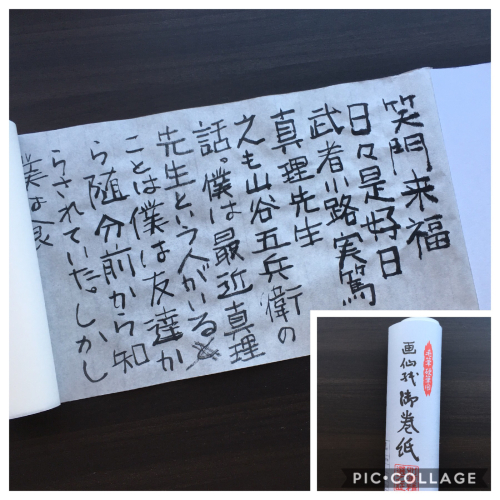 笑門来福
日々是好日
武者小路実篤
真理先生
之も山谷五兵衛の
話。僕は最近真理
先生という人がいる
ことは僕は友達か
ら随分前から知
らされていた。しかし
僕は
画仙紙御巻紙
PIC•COLLAGE